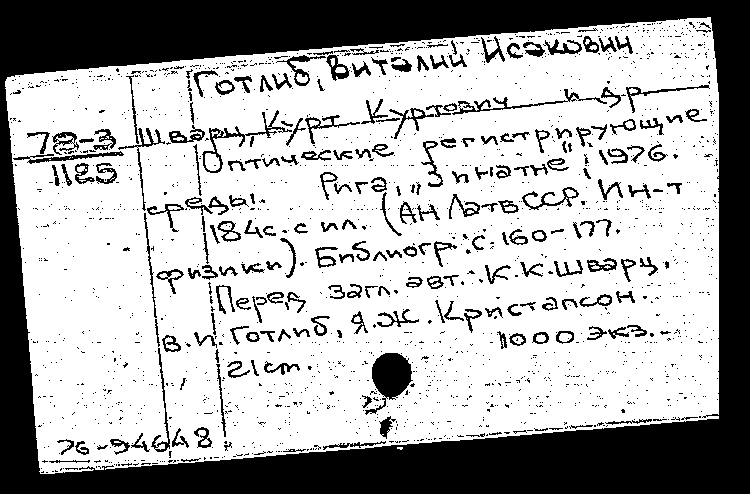 Готлиб, Виталий Исакович
78-3
1125
Шварц, Курт Куртович и др.
Оптические регистрирующие
среды. Рига, "Зинатне", 1976.
184с. с ил. (АН ЛатвССР. Ин-т
физики). Библиогр.: с. 160-177.
Перед загл. авт.: К.К.Шварц,
В.И.Готлиб, Я.Ж.Кристапсон.
1000 экз.-
21cm.
76-94648